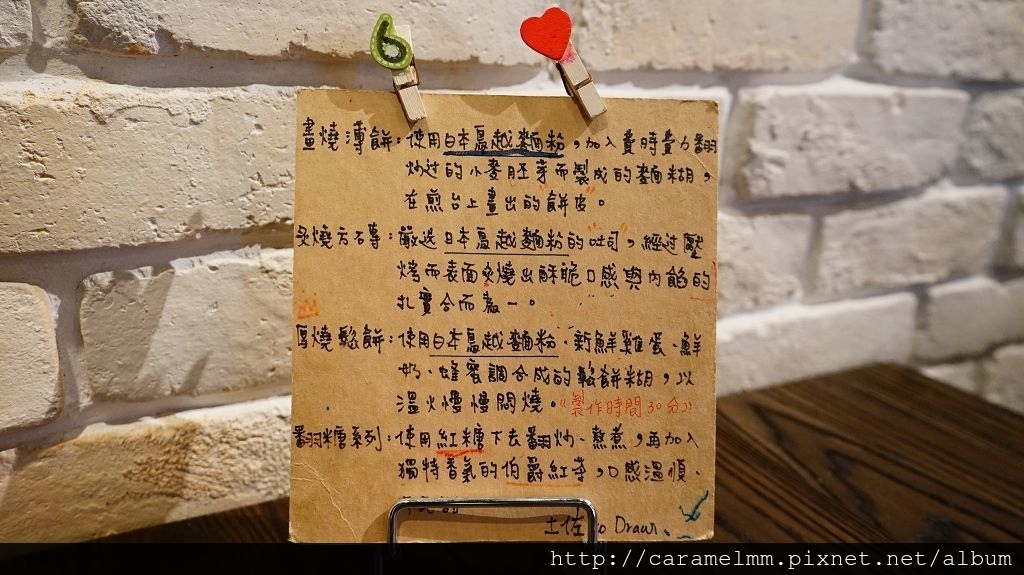 6
畫燒薄餅：使用日本鳥越麵粉，加入費時費力翻
炒过的小麥胚芽而製成的麵糊，
在煎台上畫出的餅皮。
炙燒方磚：嚴選日本鳥越麵粉的"吐司"，經过壓
烤而表面炙燒出酥脆口感與內餡的
扎實合而為一。
厚燒鬆餅：使用日本鳥越麵粉、新鮮雞蛋、鮮
奶、蜂蜜調合成的鬆餅糊，以
溫火慢慢悶燒。"製作時間30分"
翻糖系列：使用紅糖下去翻炒、熬煮，再加入
獨特香氣的伯爵紅茶，口感溫順、
土佐 to Draw.
http://caramelmm.pixnet.net/album